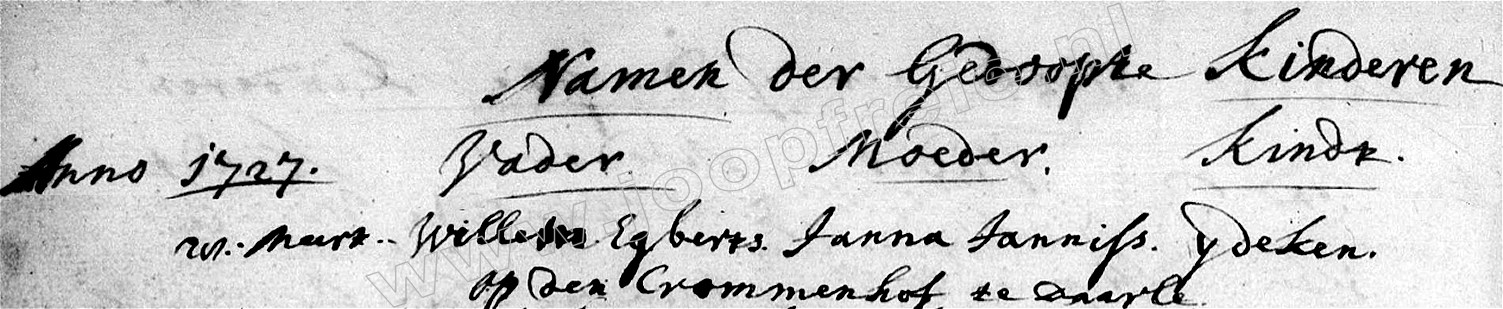 Namen der Gedoopte Kinderen
Anno 1727. Vader. Moeder. Kindt.
Mert. Willem Egberts. Janna Janniss. ydeken.
op den Crommenhof te Daarle
www.joopfrei.nl